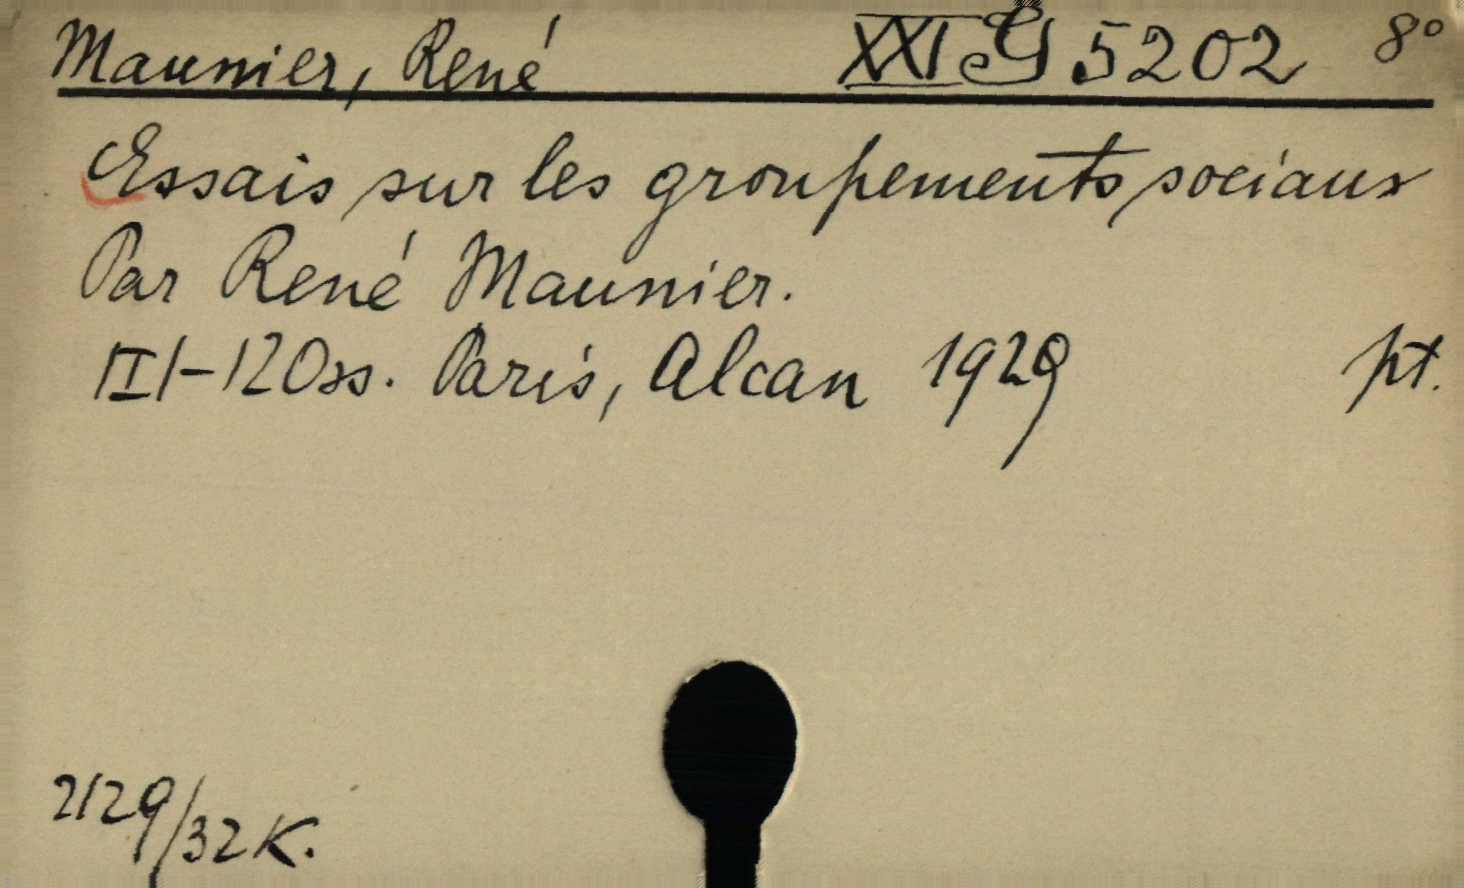 Maunier, René XXI G 5202 8°
Essais sur les groupements sociaux
Par René Maunier.
|I|-120ss. Paris, Alcan 1929 pt.
2129/32 K.